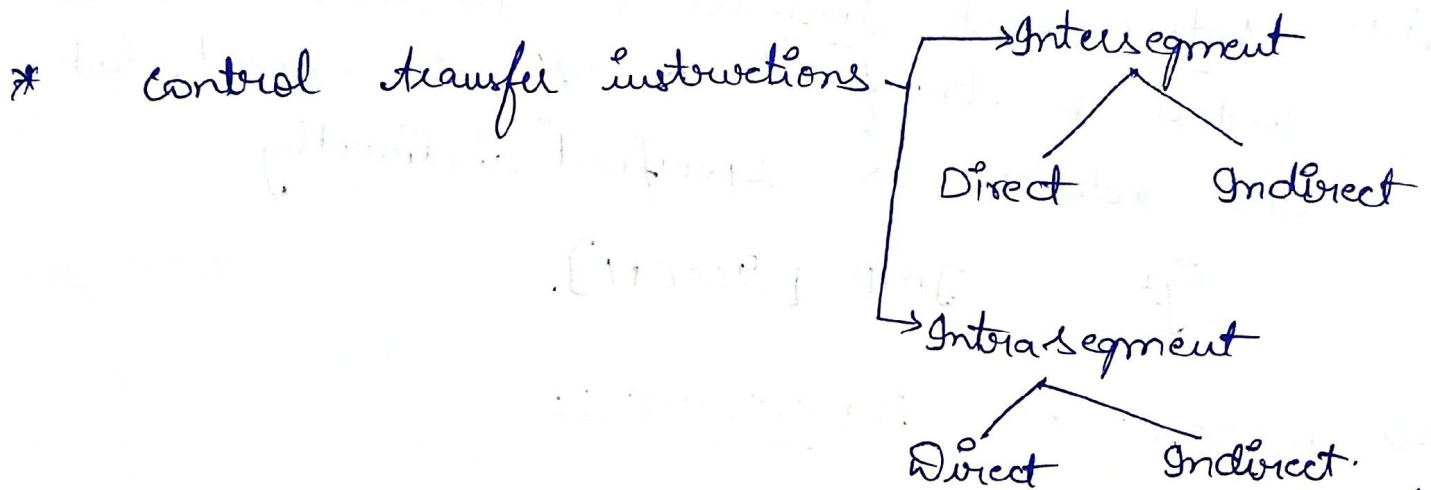 * control transfer instructions
Intersegment
Direct Indirect
Intrasegment
Direct Indirect.